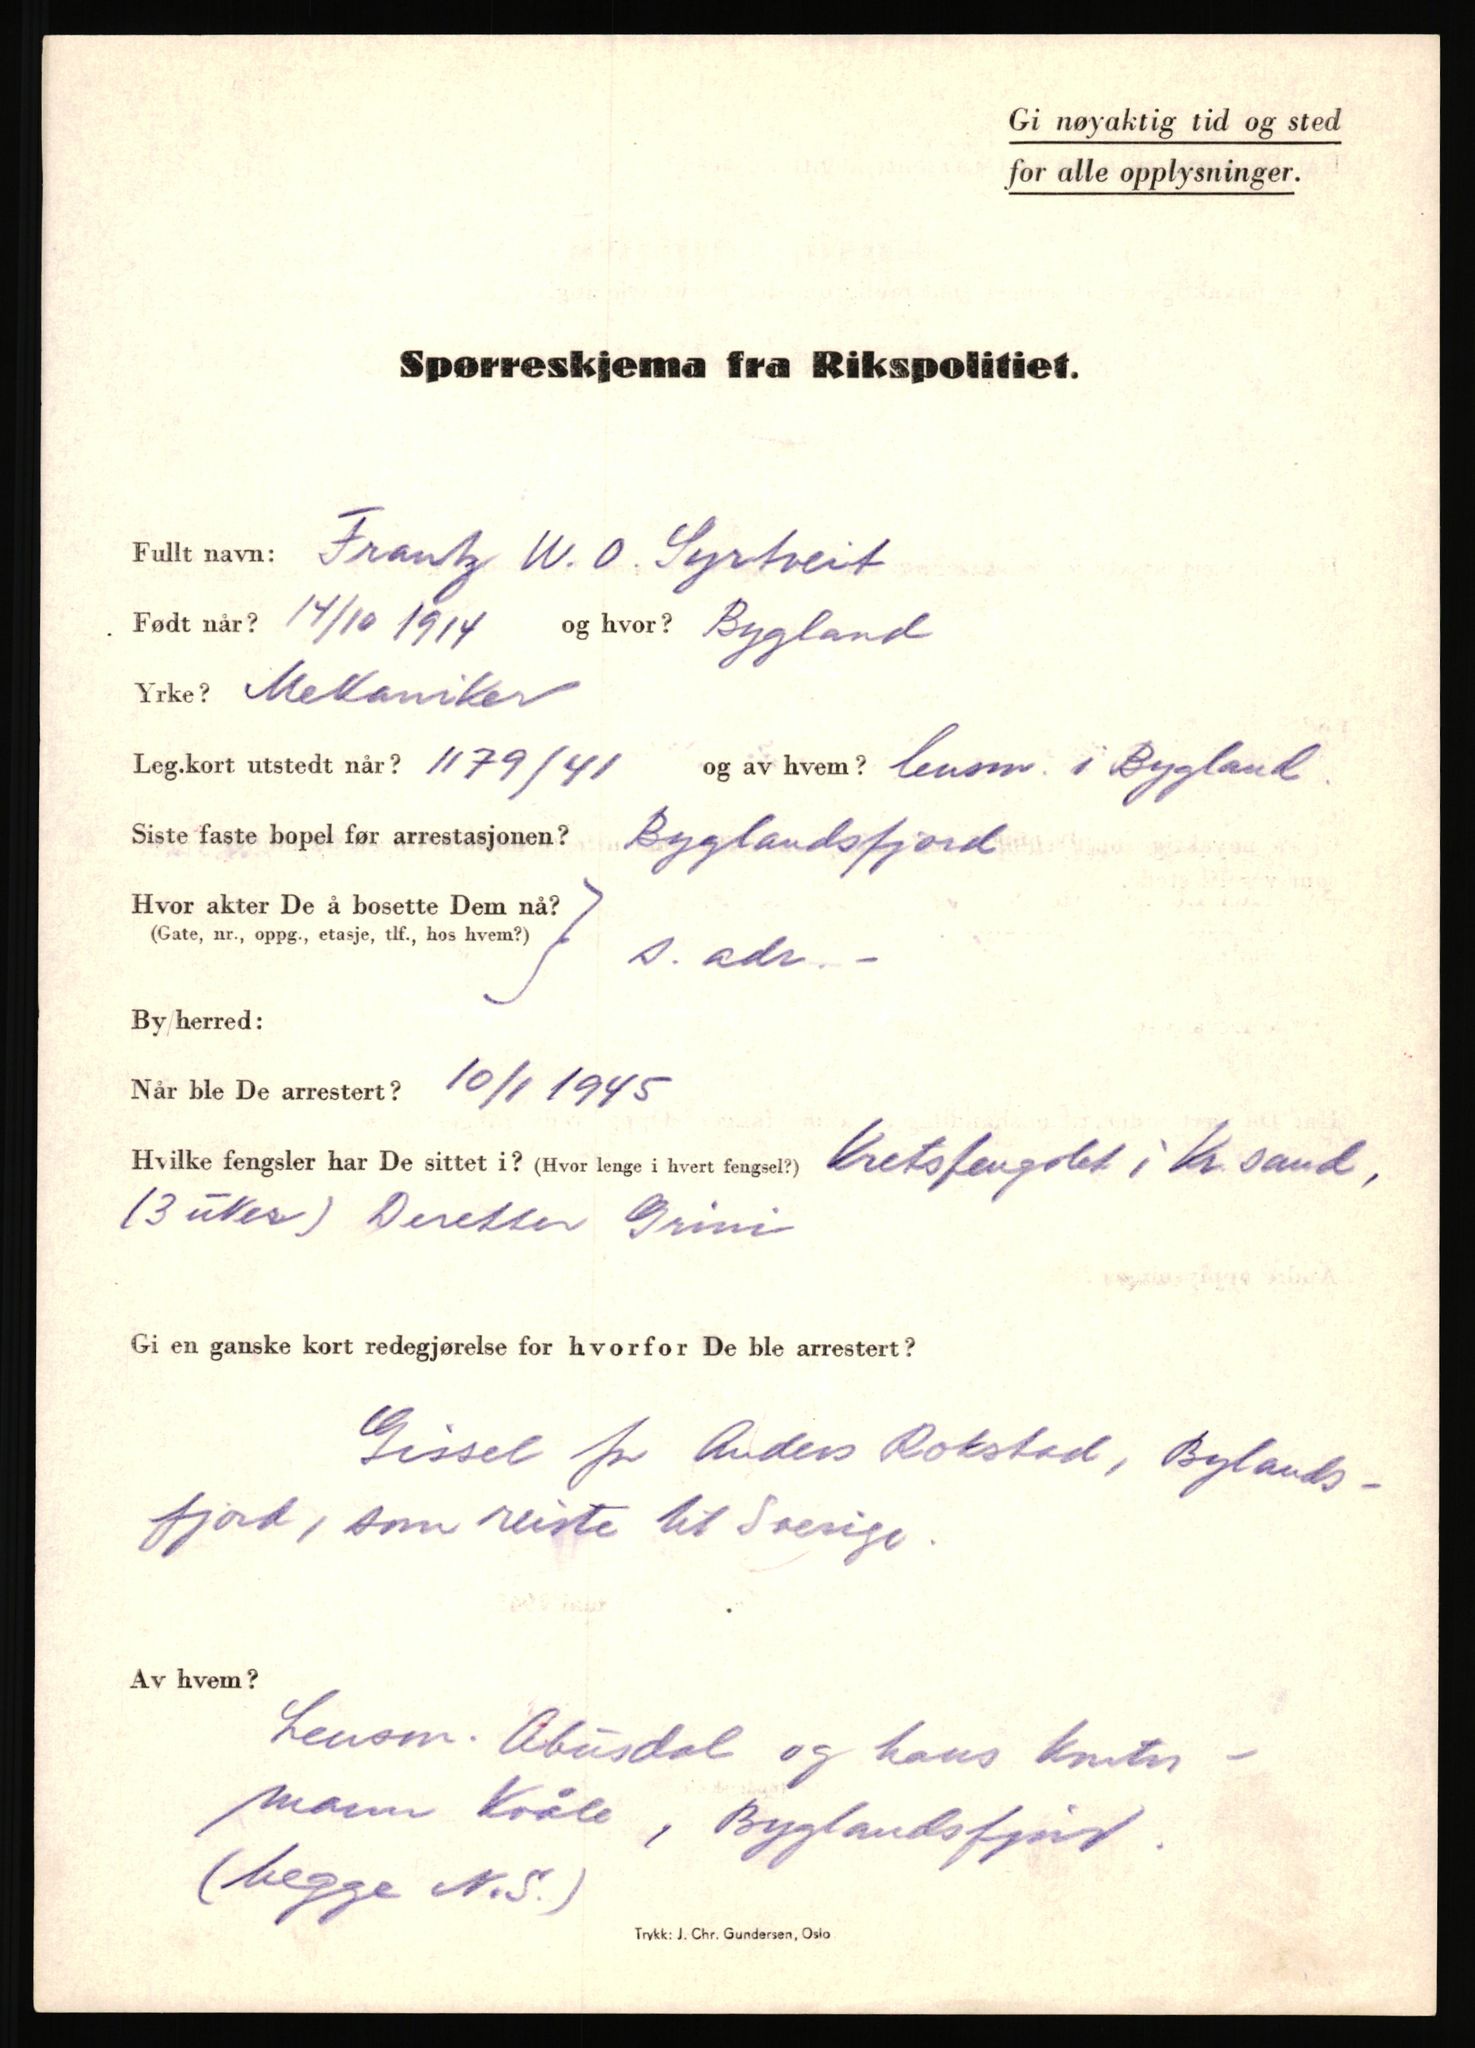 Gi nøyaktig tid og sted
for alle opplysninger.
Spørreskjema fra Rikspolitiet.
Fullt navn: Frantz W. O. Syrtveit
Født når? 14/10 1914 og hvor? Bygland
Yrke? Mekaniker
Leg.kort utstedt når? 1179/41 og av hvem? lensm. i Bygland.
Siste faste bopel før arrestasjonen? Byglandsfjord
Hvor akter De å bosette Dem nå?
(Gate, nr., oppg., etasje, tlf., hos hvem?)
s. adr. -
By/herred:
Når ble De arrestert? 10/1 1945
Hvilke fengsler har De sittet i? (Hvor lenge i hvert fengsel?) Kretsfengslet i Kr.sand,
(3 uker) Deretter Grini
Gi en ganske kort redegjørelse for hvorfor De ble arrestert?
Gissel for Anders Rokstad, Bylands-
fjord, som reiste til Sverige.
Av hvem?
Lensm. Abusdal og hans kontor-
mann Kvåle, Byglandsfjord.
(begge N.S.)
Trykk: J. Chr. Gundersen, Oslo